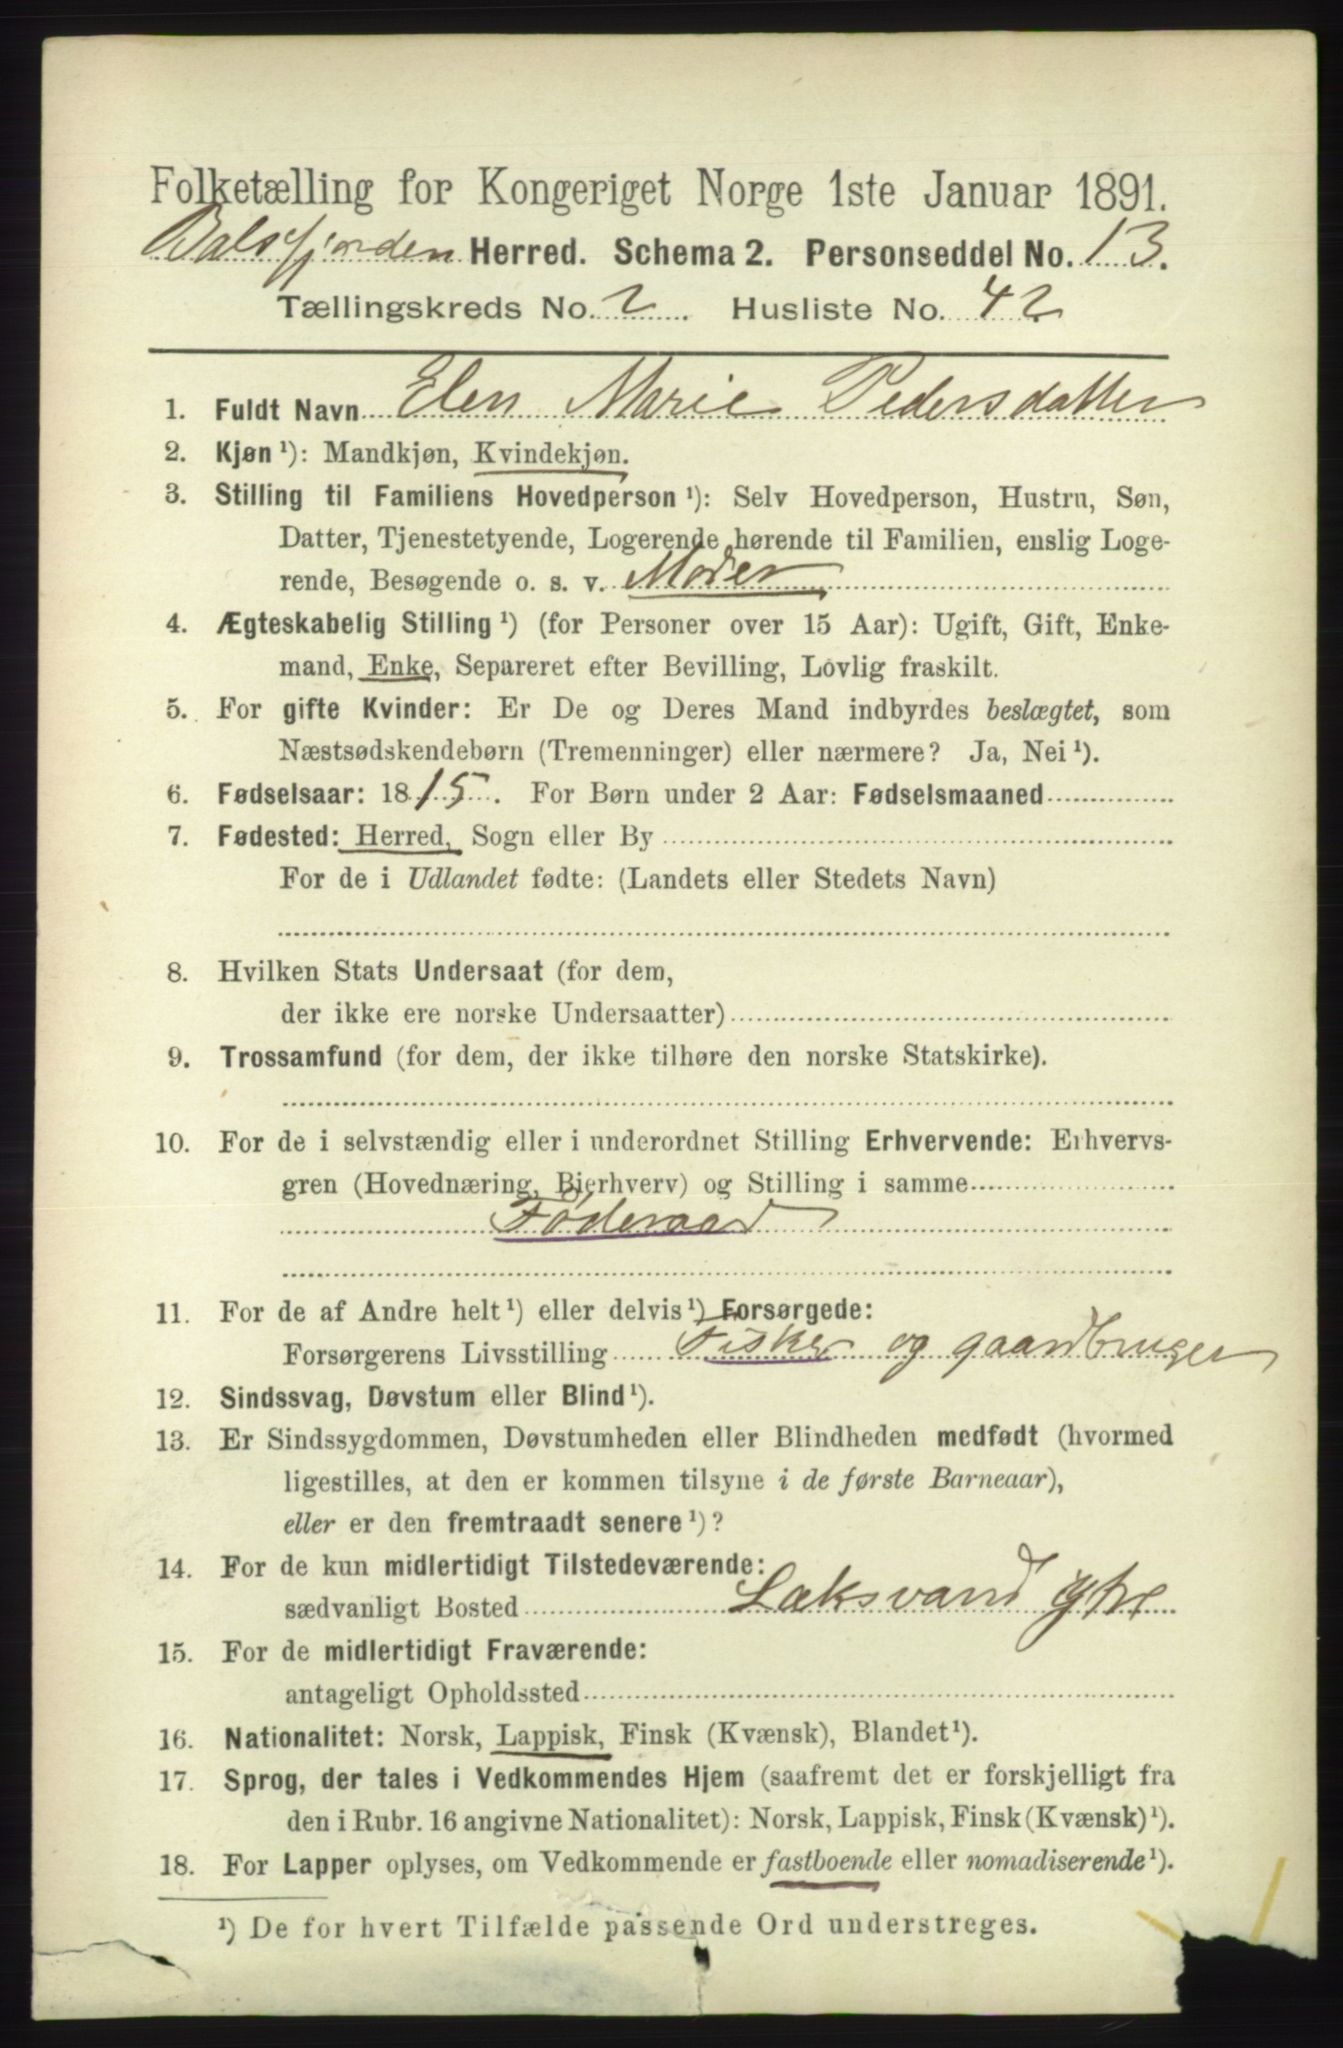 Folketælling for Kongeriget Norge 1ste Januar 1891.
Balsfjorden Herred. Schema 2. Personseddel No. 13.
Tællingskreds No. 2. Husliste No. 42
1. Fuldt Navn Elen Marie Pedersdatter
2. Kjøn ¹): Mandkjøn, Kvindekjøn.
3. Stilling til Familiens Hovedperson ¹): Selv Hovedperson, Hustru, Søn,
Datter, Tjenestetyende, Logerende hørende til Familien, enslig Loge-
rende, Besøgende o. s. v. Moder
4. Ægteskabelig Stilling ¹) (for Personer over 15 Aar): Ugift, Gift, Enke-
mand, Enke, Separeret efter Bevilling, Lovlig fraskilt.
5. For gifte Kvinder: Er De og Deres Mand indbyrdes beslægtet, som
Næstsødskendebørn (Tremenninger) eller nærmere? Ja, Nei ¹).
6. Fødselsaar: 1815. For Børn under 2 Aar: Fødselsmaaned
7. Fødested: Herred, Sogn eller By
For de i Udlandet fødte: (Landets eller Stedets Navn)
8. Hvilken Stats Undersaat (for dem,
der ikke ere norske Undersaatter)
9. Trossamfund (for dem, der ikke tilhøre den norske Statskirke).
10. For de i selvstændig eller i underordnet Stilling Erhvervende: Erhvervs-
gren (Hovednæring, Bierhverv) og Stilling i samme
Føderaad
11. For de af Andre helt ¹) eller delvis ¹) Forsørgede:
Forsørgerens Livsstilling Fisker og gaardbruger
12. Sindssvag, Døvstum eller Blind ¹).
13. Er Sindssygdommen, Døvstumheden eller Blindheden medfødt (hvormed
ligestilles, at den er kommen tilsyne i de første Barneaar),
eller er den fremtraadt senere ¹)?
14. For de kun midlertidigt Tilstedeværende:
sædvanligt Bosted Laksvand ytre
15. For de midlertidigt Fraværende:
antageligt Opholdssted
16. Nationalitet: Norsk, Lappisk, Finsk (Kvænsk), Blandet ¹).
17. Sprog, der tales i Vedkommendes Hjem (saafremt det er forskjelligt fra
den i Rubr. 16 angivne Nationalitet): Norsk, Lappisk, Finsk (Kvænsk) ¹).
18. For Lapper oplyses, om Vedkommende er fastboende eller nomadiserende ¹).
¹) De for hvert Tilfælde passende Ord understreges.